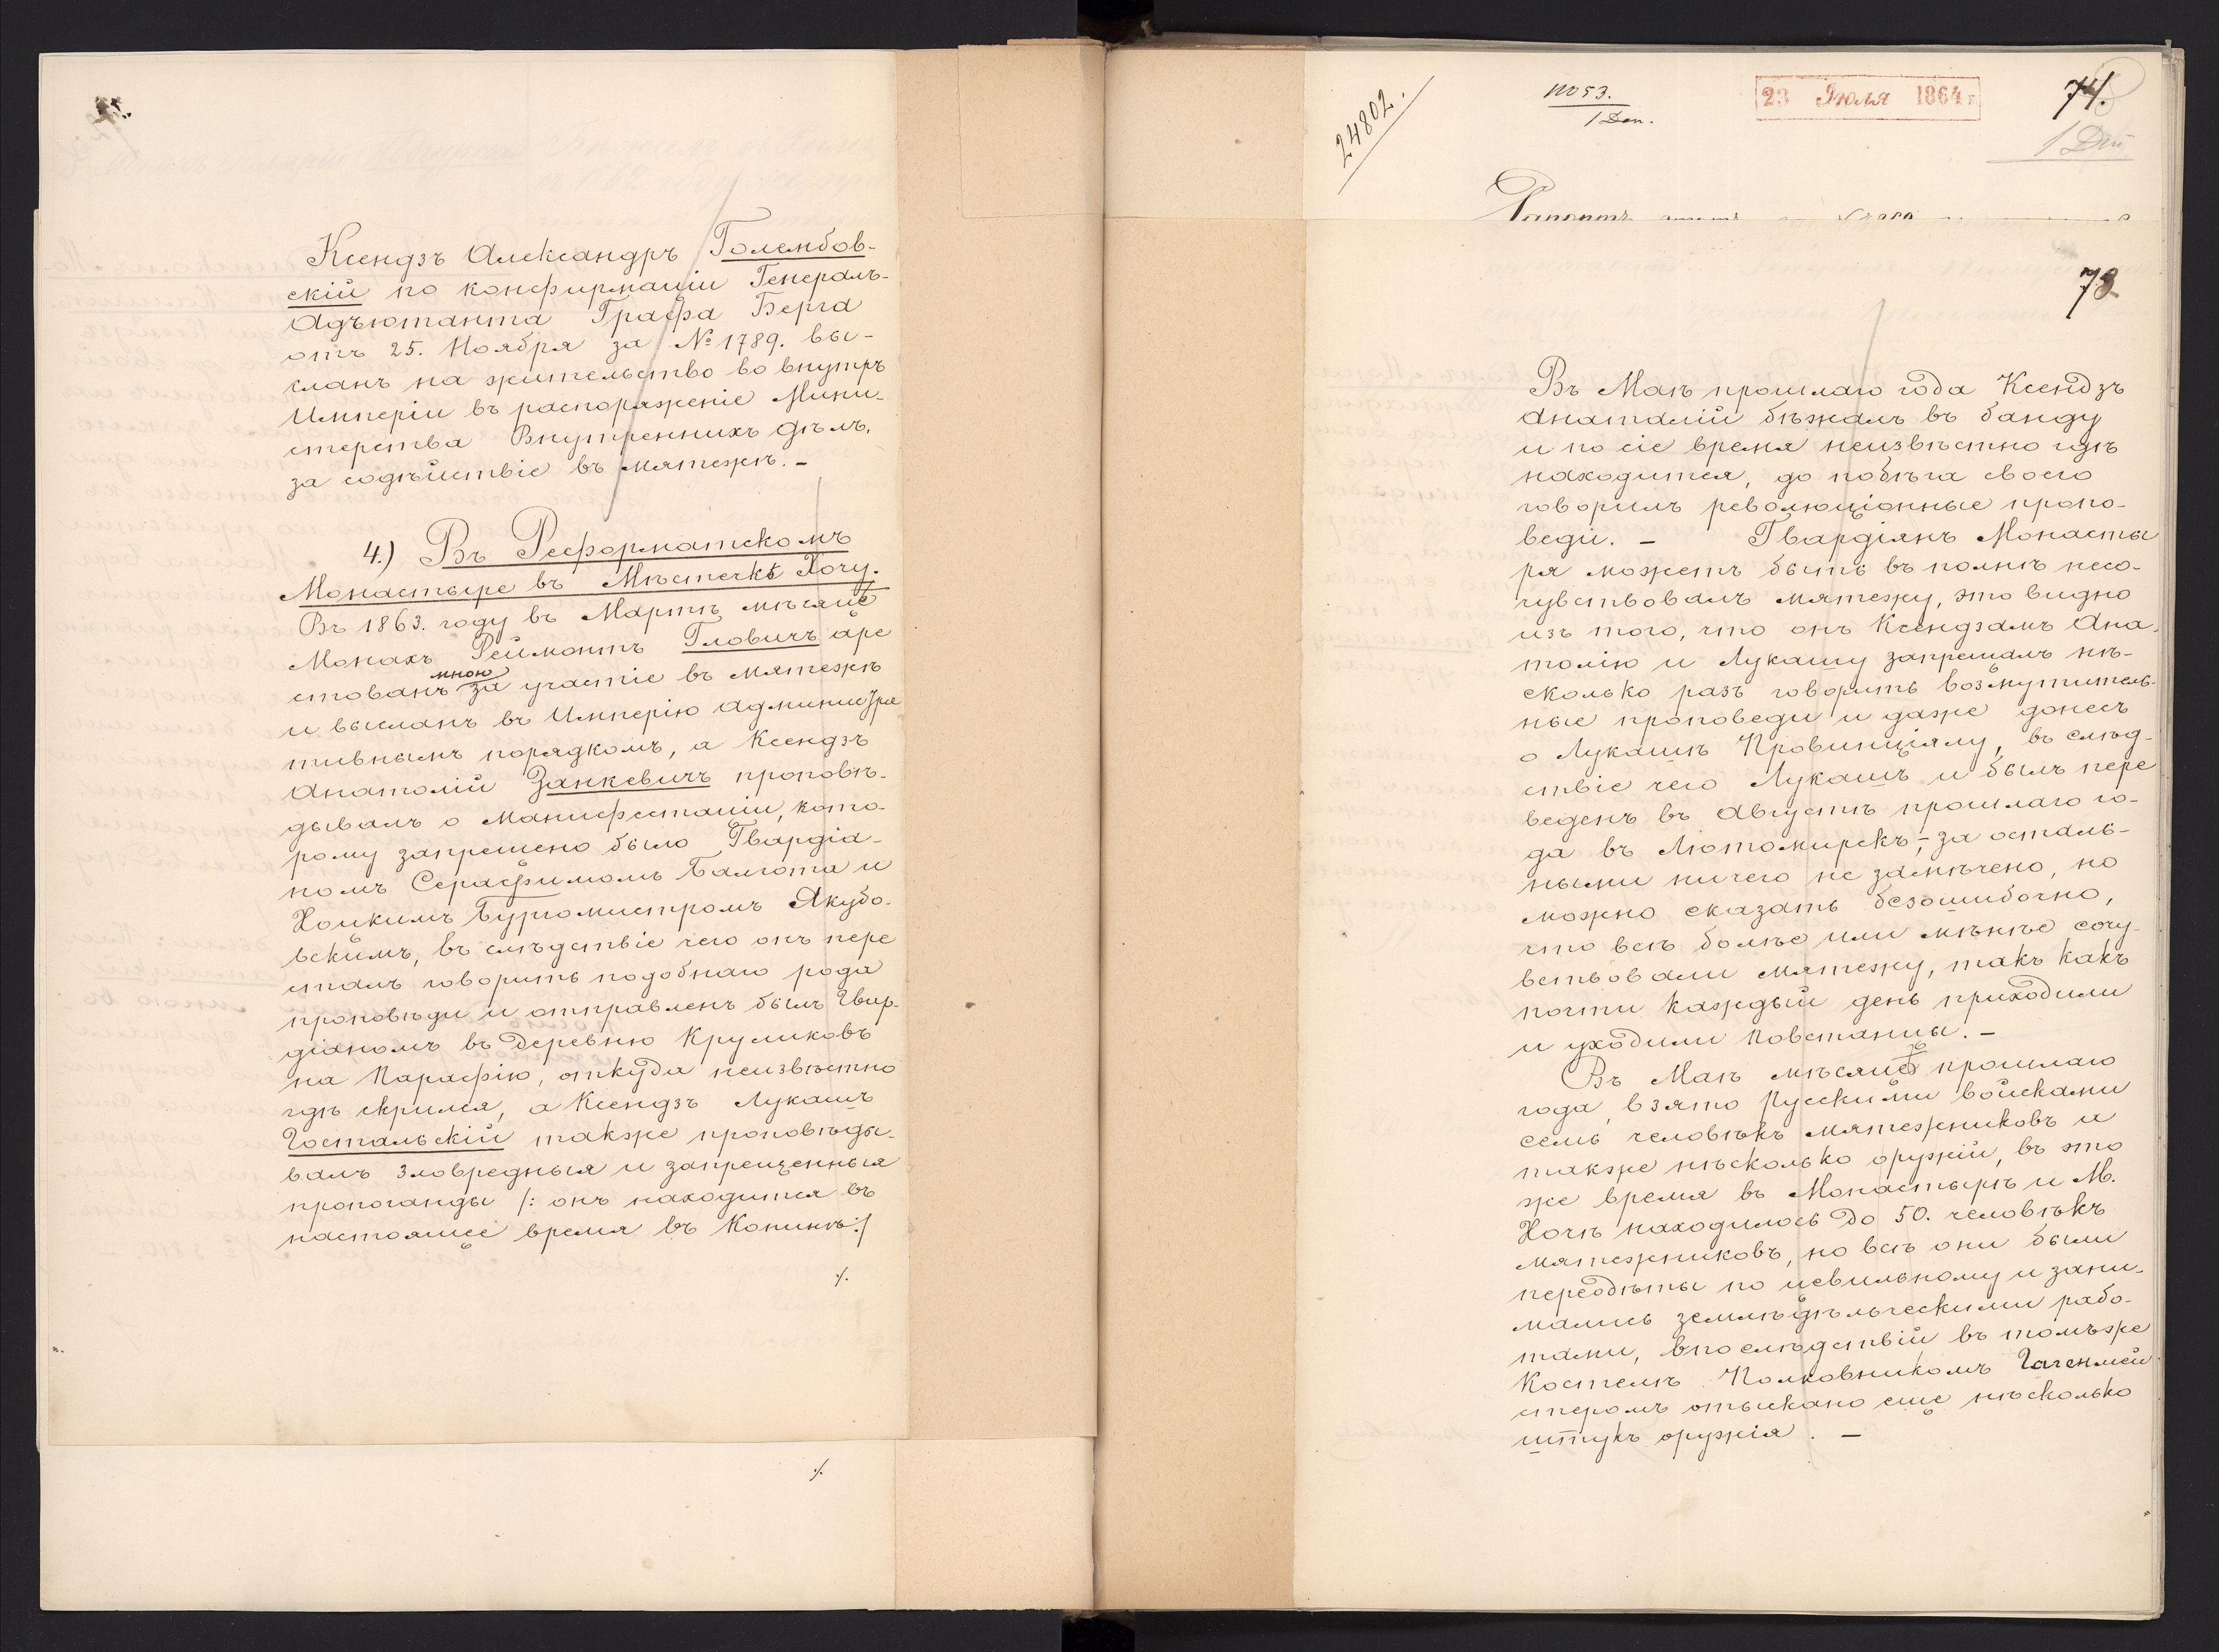 Ксендзъ Александръ Голембов-
скій по конфирмаціи Генералъ-
Адъютанта Графа Берга
отъ 25. Ноября за № 1789. вы-
сланъ на жительство во внутрь
Имперіи въ распоряженіе Мини-
стерства Внутреннихъ Дѣлъ,
за содѣйствіе въ мятежѣ. -
4.) Въ Реформатскомъ
Монастыре въ Мѣстечкѣ Хочу.
Въ 1863. году въ Мартѣ мѣсяцѣ
Монахъ Реймонтъ Гловичъ аре
стованъ мною за участіе въ мятежѣ
и высланъ въ Имперію Администра
тивнымъ порядкомъ, а Ксендзъ
Анатолій Занкевичъ проповѣ-
дывалъ о Манифестаціи, кото-
рому запрещено было Гвардіа-
номъ Серафимомъ Балгота и
Хоцкимъ Бургомистромъ Якубо-
вскимъ, въ слѣдствіе чего онъ пере
сталъ говорить подобнаго рода
проповѣди и отправленъ былъ Гвар-
діаномъ въ Деревню Круликовъ
на Парафію, откуда неизвѣстно
гдѣ скрился, а Ксендзъ Лукашъ
Гостальскій также проповѣды-
валъ зловредныя и запрещенныя
пропоганды /: онъ находится въ
настоящее время въ Конинѣ :/
./.
./.
24802.
№ 53.
1 Ден.
23 Іюля 1864 г.
74.
Рапортъ
78
Въ Маѣ прошлаго года Ксендзъ
Анаталій бѣжалъ въ банду
и по сіе время неизвѣстно гдѣ
находится, до побѣга своего
говорилъ революціонные пропо-
веди. - Гвардіянъ Монасты
ря можетъ быть въ полнѣ несо-
чувствовалъ мятежу, это видно
изъ того, что онъ Ксендзамъ Ана-
толію и Лукашу запрещалъ нѣ-
сколько разъ говорить возмутитель-
ные проповеди и даже донесъ
о Лукашѣ Провинціялу, въ слѣд-
ствіе чего Лукашъ и былъ пере
веденъ въ Августѣ прошлаго го-
да въ Лютомирскъ, - за осталь-
ными ничего не замѣчено, но
можно сказать безошибочно,
что всѣ болѣе или мѣнѣе сочу-
вствовали мятежу, такъ какъ
почти каждый день приходили
и уходили Повстанцы. -
Въ Маѣ мѣсяцѣ прошлаго
года, взято Русскими войсками
семь человѣкъ мятежниковъ и
также нѣсколько оружій, въ это
же время въ Монастырѣ и М.
Хочѣ находилось до 50. человѣкъ
мятежниковъ, но всѣ они были
переодѣты по цевильному и зани-
мались землѣдѣльческими рабо-
тами, впослѣдствій въ томъ же
Костелѣ Полковникомъ Гагенмей
стеромъ отыскано еще нѣсколько
штукъ оружія. -